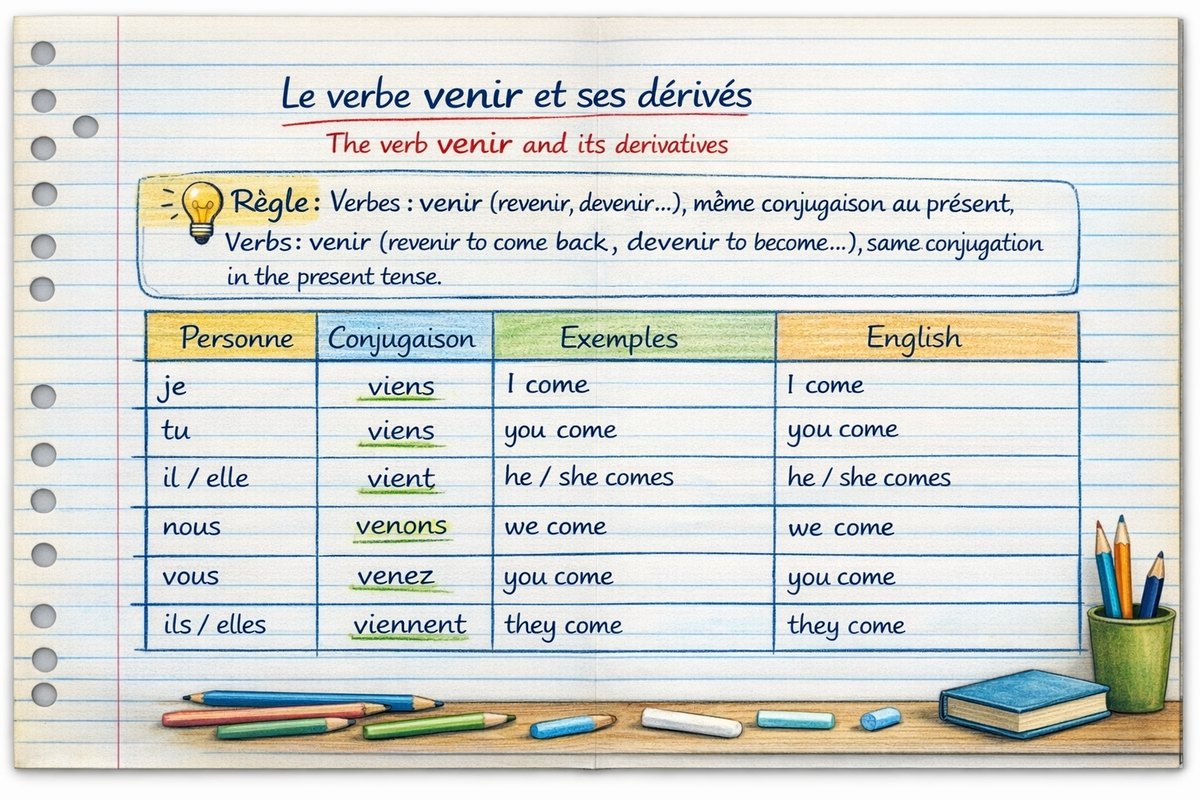 Le verbe venir et ses dérivés
The verb venir and its derivatives
Règle : Verbes : venir (revenir, devenir...), même conjugaison au présent,
Verbs : venir (revenir to come back, devenir to become...), same conjugation
in the present tense.
Personne Conjugaison Exemples English
je viens I come I come
tu viens you come you come
il / elle vient he / she comes he / she comes
nous venons we come we come
vous venez you come you come
ils / elles viennent they come they come